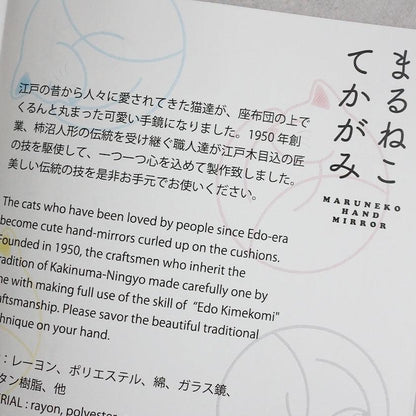 まるねこ
てかがみ
MARUNEKO
HAND
MIRROR
江戸の昔から人々に愛されてきた猫達が、座布団の上で
くるんと丸まった可愛い手鏡になりました。1950 年創
業、柿沼人形の伝統を受け継ぐ職人達が江戸木目込の匠
の技を駆使して、一つ一つ心を込めて製作致しました。
美しい伝統の技を是非お手元でお使いください。
The cats who have been loved by people since Edo-era
become cute hand-mirrors curled up on the cushions.
Founded in 1950, the craftsmen who inherit the
tradition of Kakinuma-Ningyo made carefully one by
one with making full use of the skill of "Edo Kimekomi"
craftsmanship. Please savor the beautiful traditional
technique on your hand.
：レーヨン、ポリエステル、綿、ガラス鏡、
タン樹脂、他
ERIAL : rayon, polyester